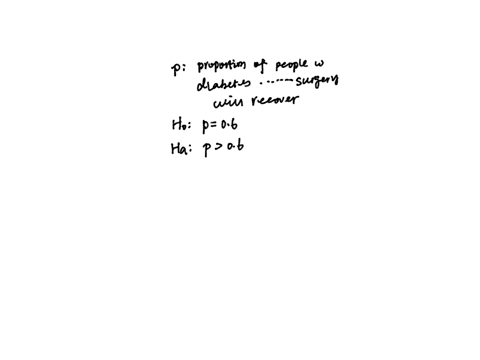 p: proportion of people w
diabetes ...... surgery
will recover
H₀: p = 0.6
Ha: p > 0.6